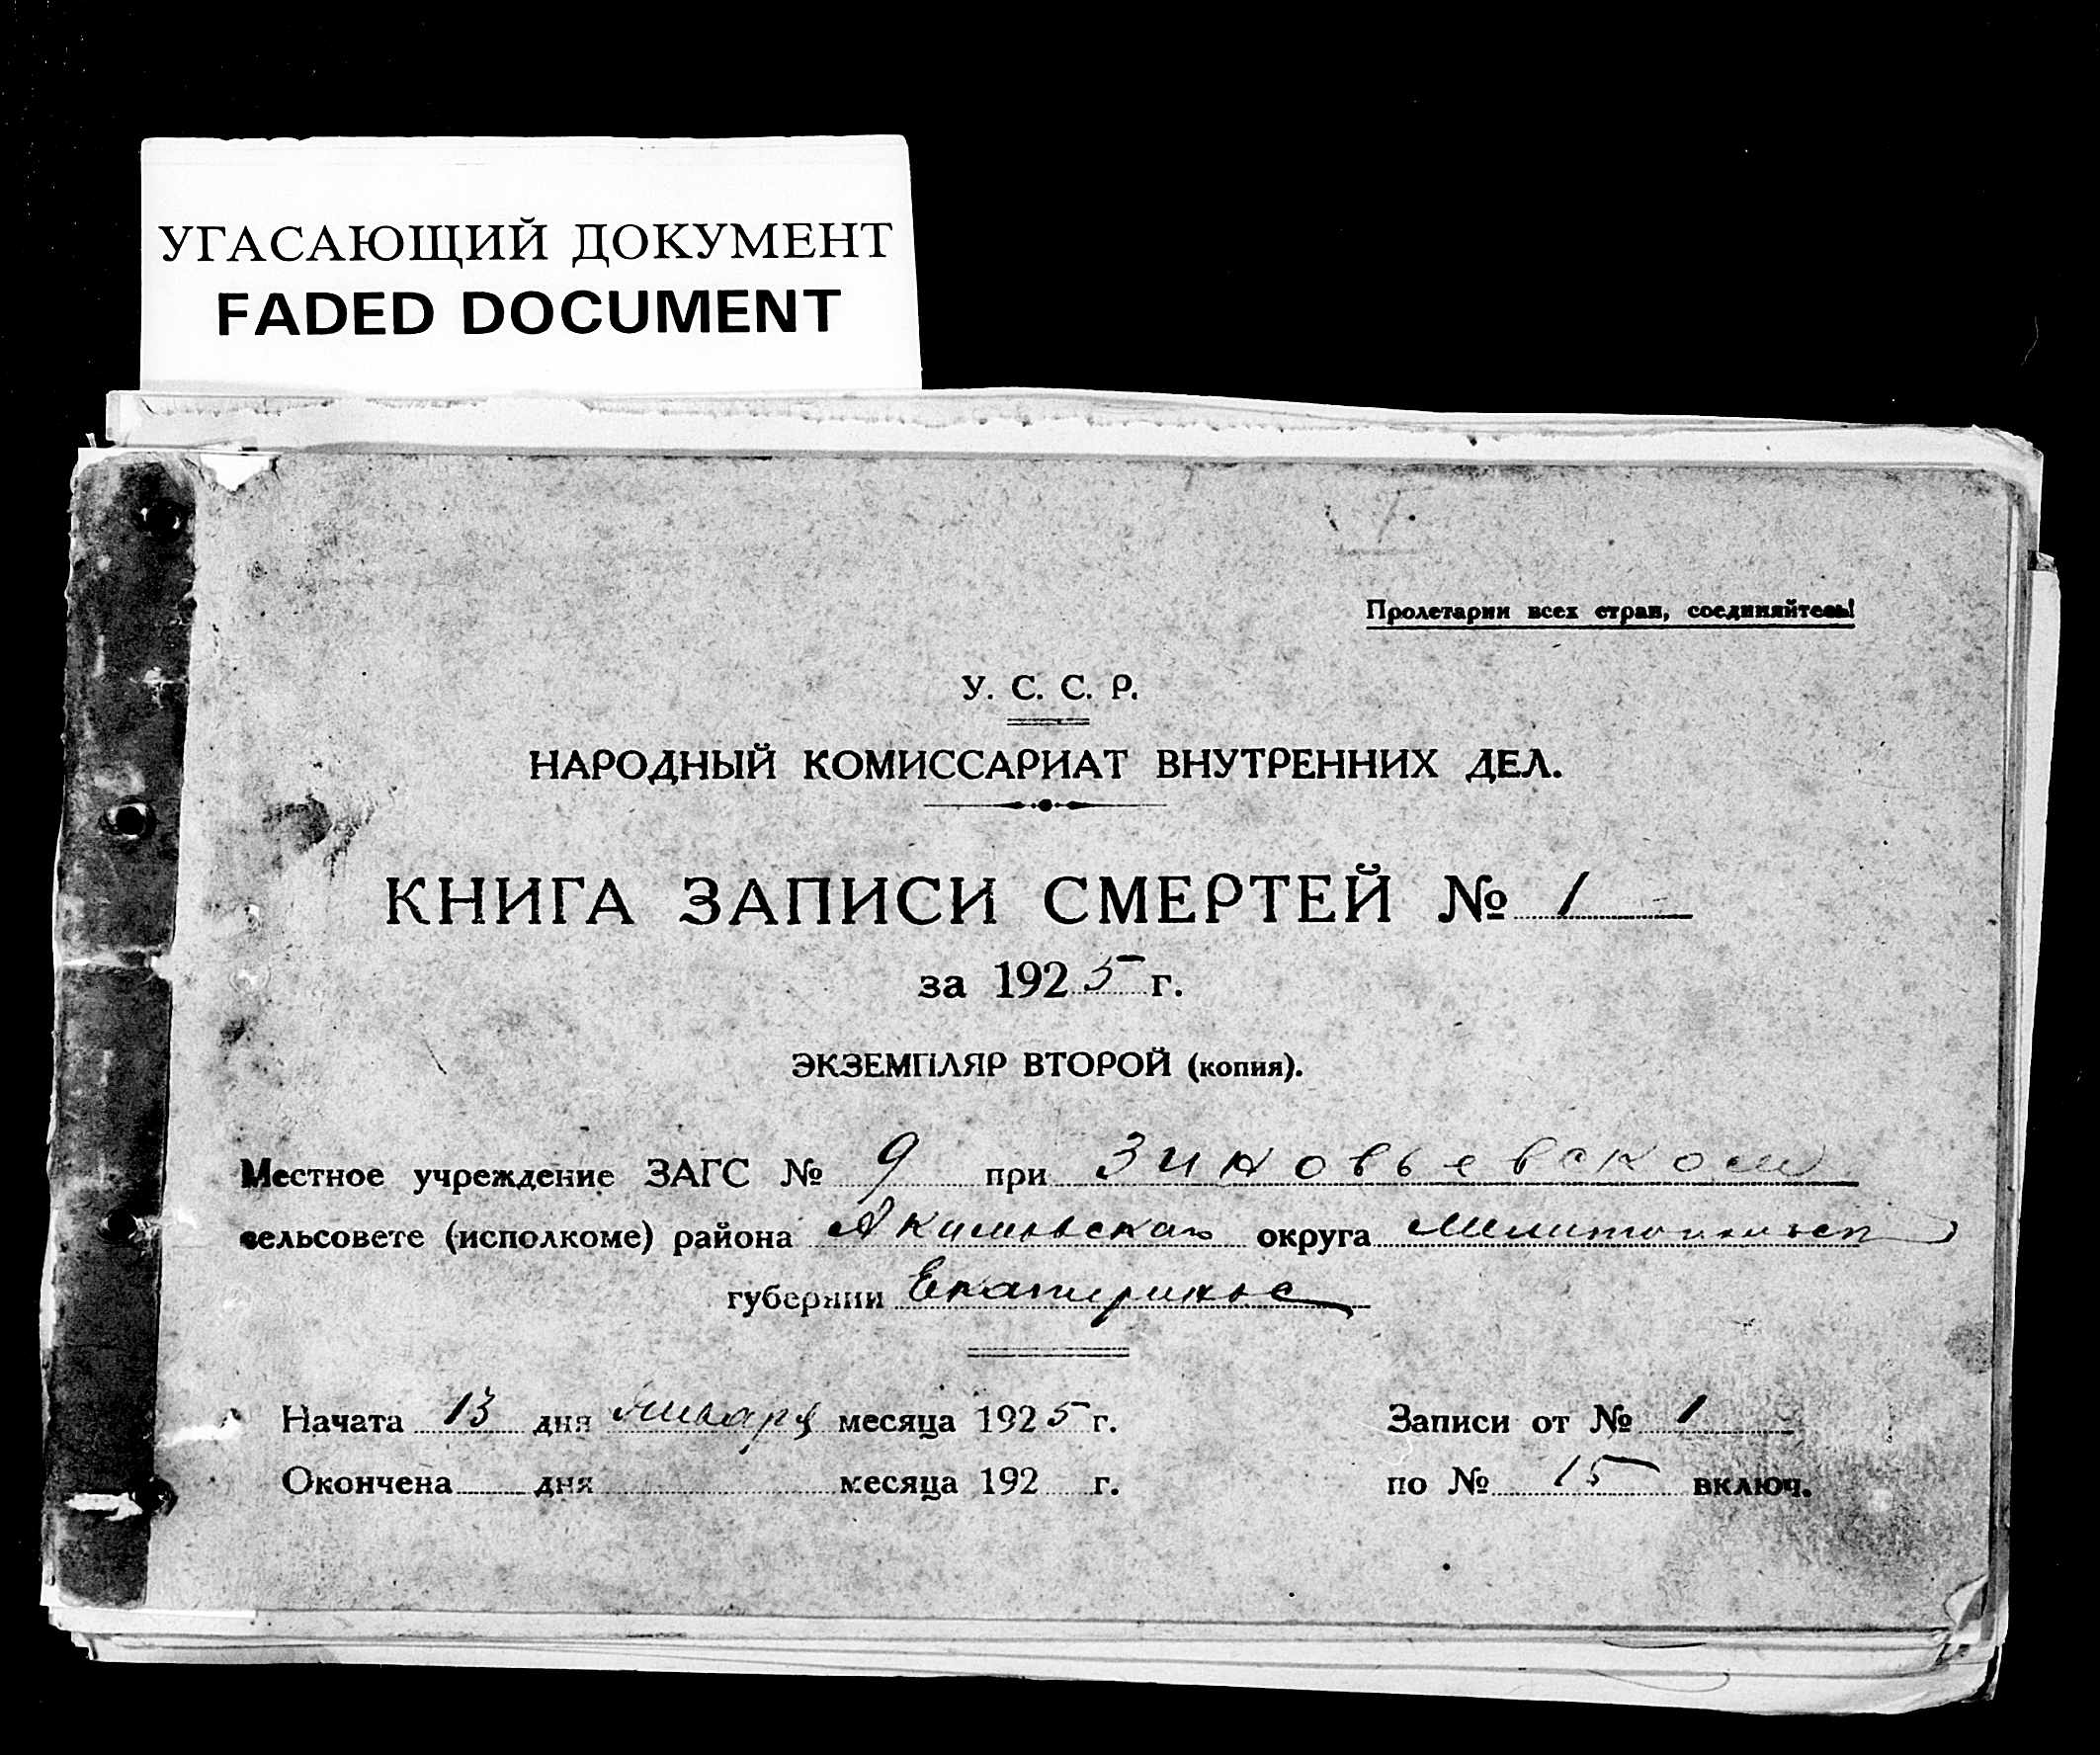 УГАСАЮЩИЙ ДОКУМЕНТ
FADED DOCUMENT
Пролетарии всех стран, соединяйтесь!
У. С. С. Р.
НАРОДНЫЙ КОМИССАРИАТ ВНУТРЕННИХ ДЕЛ.
КНИГА ЗАПИСИ СМЕРТЕЙ № 1
за 1925 г.
ЭКЗЕМПЛЯР ВТОРОЙ (копия).
Местное учреждение ЗАГС № 9 при Зиновьевском
сельсовете (исполкоме) района Акимовского округа Мелитопольск
губернии Екатеринос
Начата 13 дня Января месяца 1925 г. Записи от № 1
Окончена дня месяца 192 г. по № 15 включ.